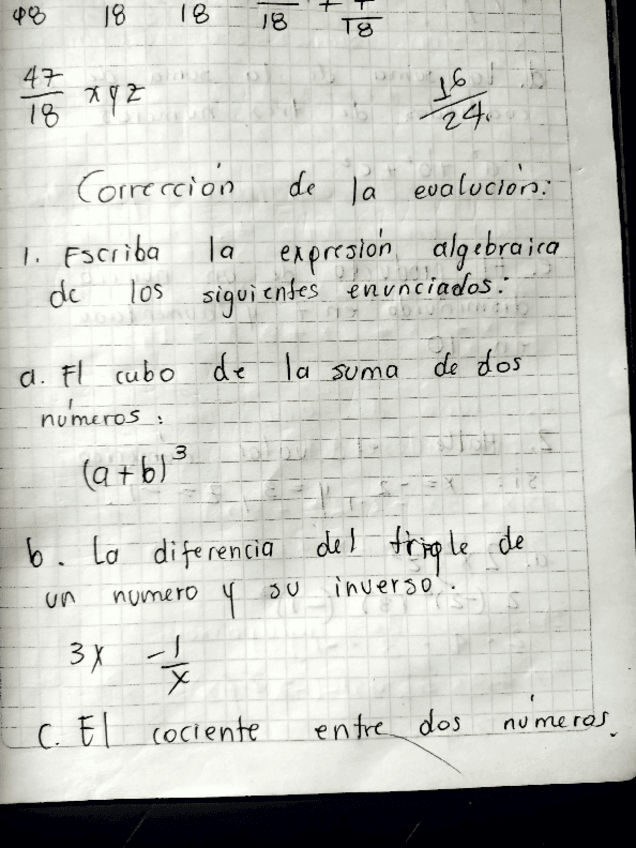 48 18 18 18 + 18
47/18 xyz 16/24
Corrección de la evalución:
1. Escriba la expresión algebraica
de los siguientes enunciados:
a. El cubo de la suma de dos
números:
(a+b)³
b. La diferencia del triple de
un numero y su inverso.
3x - 1/x
C. El cociente entre dos números.